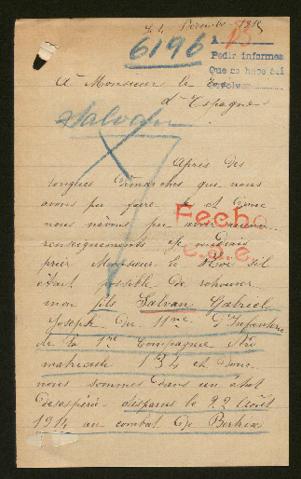 Decembre 1915
6196
A 13
Pedir informes
Que se hace
A Monsieur le Roi
d'Espagne
Salvan
Après des
longues démarches que nous
avons pu faire et donc
nous n'avons pu
renseignements je voudrais
prier Monsieur le Roi s'il
était possible de retrouver
mon fils Salvan Gabriel
Joseph du 11me d'Infanterie
de la 1re Compagnie Nro
matricule 134 et donc
nous sommes dans un état
désespéré disparus le 22 Août
1914 au combat de Bertrix
Fecho
c.o.e